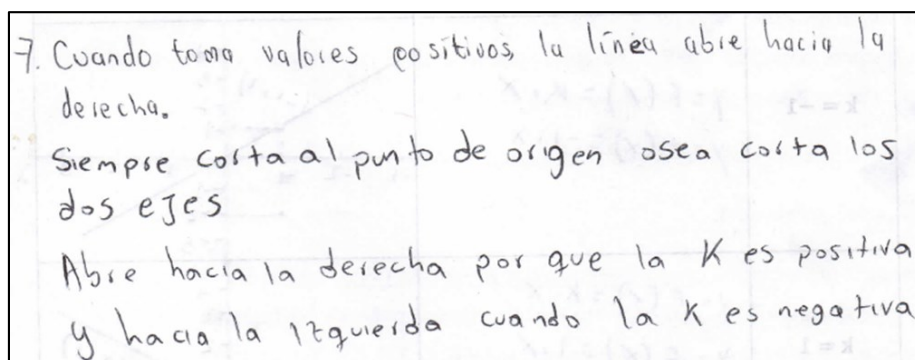 7. Cuando toma valores positivos, la línea abre hacia la
derecha.
Siempre corta al punto de origen osea corta los
dos eJes
Abre hacia la derecha por que la K es positiva
y hacia la izquierda cuando la K es negativa